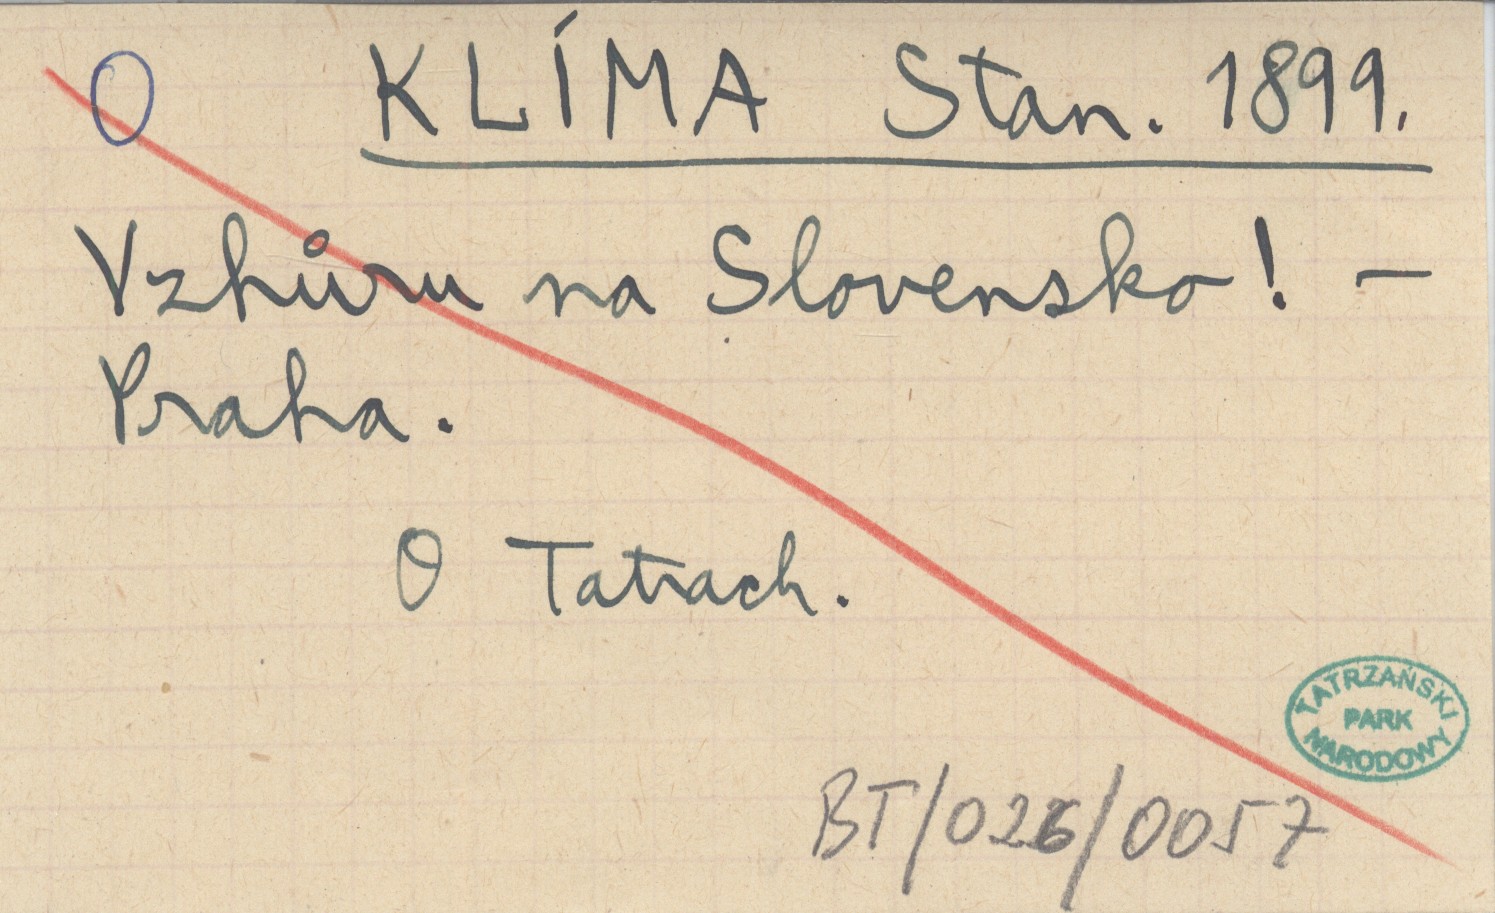 O KLÍMA Stan. 1899.
Vzhůru na Slovensko! –
Praha.
O Tatrach.
TATRZAŃSKI
PARK
NARODOWY
BT/026/0057